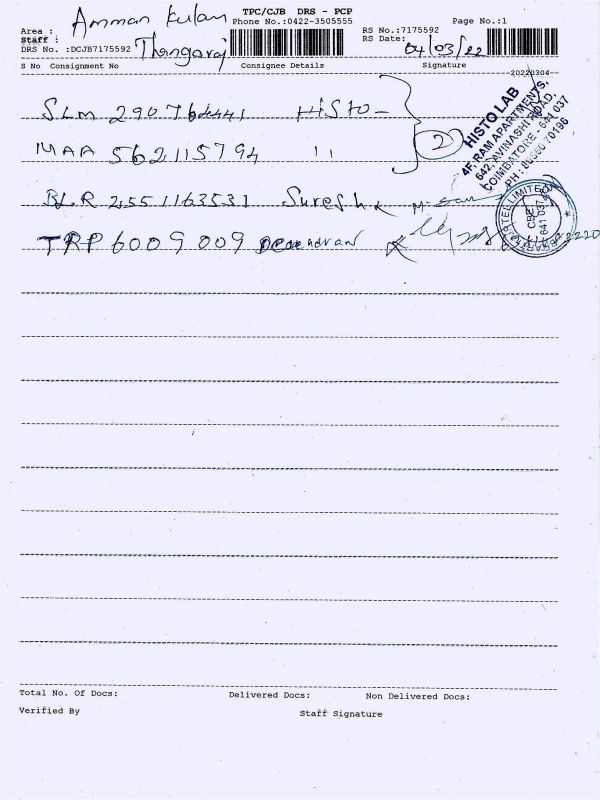 TPC/CJB DRS - PCP
Area : Amman Kulam Phone No.:0422-3505555 Page No.:1
Staff : Thangaraj RS No.:7175592
DRS No. :DCJB7175592 RS Date: 04/03/22
S No Consignment No Consignee Details Signature
20220304
SLM 290764441 HISTO
MAA 562115794 " 2
BLR 2551163531 Suresh
TRP 6009009
HISTO LAB
4F, RAM APARTMENTS,
642, AVINASHI ROAD,
COIMBATORE - 641 037
CBE
641 037
Total No. Of Docs: Delivered Docs: Non Delivered Docs:
Verified By Staff Signature